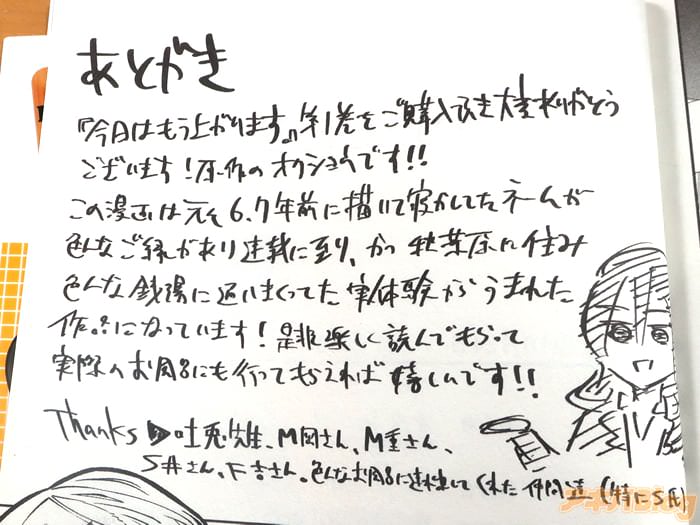 あとがき
『今日はもう上がります。』第1巻をご購入頂き大変ありがとう
ございます！原作のオクショウです!!
この漫画は元々6.7年前に描いて寝かしてたネームが
色んなご縁があり連載に至り、かつ秋葉原に住み
色んな銭湯に通いまくってた実体験からうまれた
作品になっています！是非楽しく読んでもらって
実際のお風呂にも行ってもらえれば嬉しいです!!
Thanks ▶ 吐兎先生、M岡さん、M重さん、
S井さん、F吉さん。色んなお風呂に連れ出してくれた仲間達(特にS氏)
アキバBlog